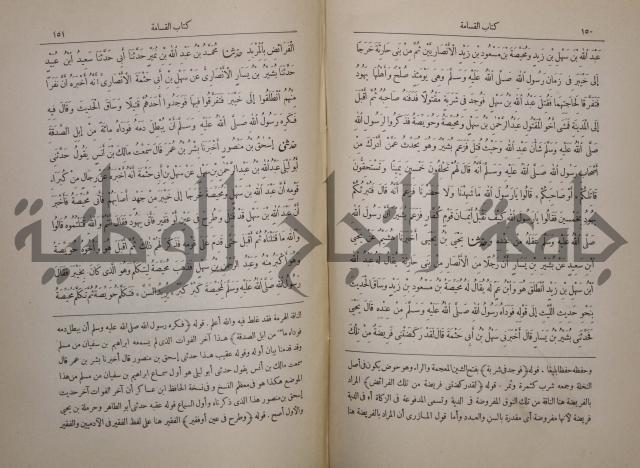 ١٥٠
كتاب القسامة
عبد الله بن سهل بن زيد ومحيصة بن مسعود بن زيد الأنصاريين ثم من بنى حارثة خرجا
إلى خيبر فى زمان رسول الله صلى الله عليه وسلم وهى يومئذ صلح وأهلها يهود
فتفرقا لحاجتهما فقتل عبد الله بن سهل فوجد فى شربة مقتولا فدفنه صاحبه ثم أقبل
إلى المدينة فمشى أخو المقتول عبد الرحمن بن سهل ومحيصة وحويصة فذكروا لرسول الله
صلى الله عليه وسلم شأن عبد الله وحيث قتل فزعم بشير وهو يحدث عمن أدرك من
أصحاب رسول الله صلى الله عليه وسلم أنه قال لهم تحلفون خمسين يمينا وتستحقون
قاتلكم أو صاحبكم قالوا يارسول الله ماشهدنا ولا حضرنا فزعم أنه قال فتبرئكم
يهود بخمسين فقالوا يارسول الله كيف نقبل أيمان قوم كفار فزعم بشير أن رسول الله
صلى الله عليه وسلم عقله من عنده حدثنا يحيى بن يحيى أخبرنا هشيم عن يحيى
ابن سعيد عن بشير بن يسار أن رجلا من الأنصار من بنى حارثة يقال له عبد الله
ابن سهل بن زيد انطلق هو وابن عم له يقال له محيصة بن مسعود بن زيد وساق الحديث
بنحو حديث الليث إلى قوله فوداه رسول الله صلى الله عليه وسلم من عنده قال يحيى
فحدثنى بشير بن يسار قال أخبرنى سهل بن أبى حثمة قال لقد ركضتنى فريضة من تلك
وحفظه حفظا بليغا . قوله ﴿فوجد فى شربة﴾ بفتح الشين المعجمة والراء وهو حوض يكون فى أصل
النخلة وجمعه شرب كثمرة وثمر . قوله ﴿لقد ركضتنى فريضة من تلك الفرائض﴾ المراد
بالفريضة هنا الناقة من تلك النوق المفروضة فى الدية وتسمى المدفوعة فى الزكاة أو فى الدية
فريضة لأنها مفروضة أى مقدرة بالسن والعدد وأما قول المازرى أن المراد بالفريضة هنا
كتاب القسامة
١٥١
الفرائض بالمربد حدثنا محمد بن عبد الله بن نمير حدثنا أبى حدثنا سعيد بن عبيد
حدثنا بشير بن يسار الأنصارى عن سهل بن أبى حثمة الأنصارى أنه أخبره أن نفرا
منهم انطلقوا إلى خيبر فتفرقوا فيها فوجدوا أحدهم قتيلا وساق الحديث وقال فيه
فكره رسول الله صلى الله عليه وسلم أن يبطل دمه فوداه مائة من إبل الصدقة
حدثنى إسحق بن منصور أخبرنا بشر بن عمر قال سمعت مالك بن أنس يقول حدثنى
أبو ليلى عبد الله بن عبد الرحمن بن سهل عن سهل بن أبى حثمة أنه أخبره عن رجال من كبراء
قومه أن عبد الله بن سهل ومحيصة خرجا إلى خيبر من جهد أصابهم فأتى محيصة فأخبر
أن عبد الله بن سهل قد قتل وطرح فى عين أو فقير فأتى يهود فقال أنتم والله قتلتموه قالوا
والله ما قتلناه ثم أقبل حتى قدم على قومه فذكر لهم ذلك ثم أقبل هو وأخوه حويصة
وهو أكبر منه وعبد الرحمن بن سهل فذهب محيصة ليتكلم وهو الذى كان بخيبر فقال
رسول الله صلى الله عليه وسلم لمحيصة كبر كبر «يريد السن» فتكلم حويصة ثم تكلم محيصة
الناقة الهرمة فقد غلط فيه والله أعلم . قوله ﴿فكره رسول الله صلى الله عليه وسلم أن يبطل دمه
فوداه مائة من ابل الصدقة﴾ هذا آخر الفوات الذى لم يسمعه ابراهيم بن سفيان من مسلم
وقد قدمنا بيان أوله وقوله عقيب هذا حدثنى إسحق بن منصور قال أخبرنا بشر بن عمر قال
سمعت مالك بن أنس يقول حدثنى أبو ليلى هو أول سماع ابراهيم بن سفيان من مسلم من هذا
الموضع هكذا هو فى معظم النسخ وفى نسخة الحافظ ابن عساكر أن آخر الفوات آخر حديث
إسحق بن منصور هذا الذى ذكرناه وأول السماع قوله عقبه حدثنى أبو الطاهر وحرملة بن يحيى
والأول أصح . قوله ﴿وطرح فى عين أو فقير﴾ الفقير هنا على لفظ الفقير فى الآدميين والفقير
جامعة النجاح الوطنية